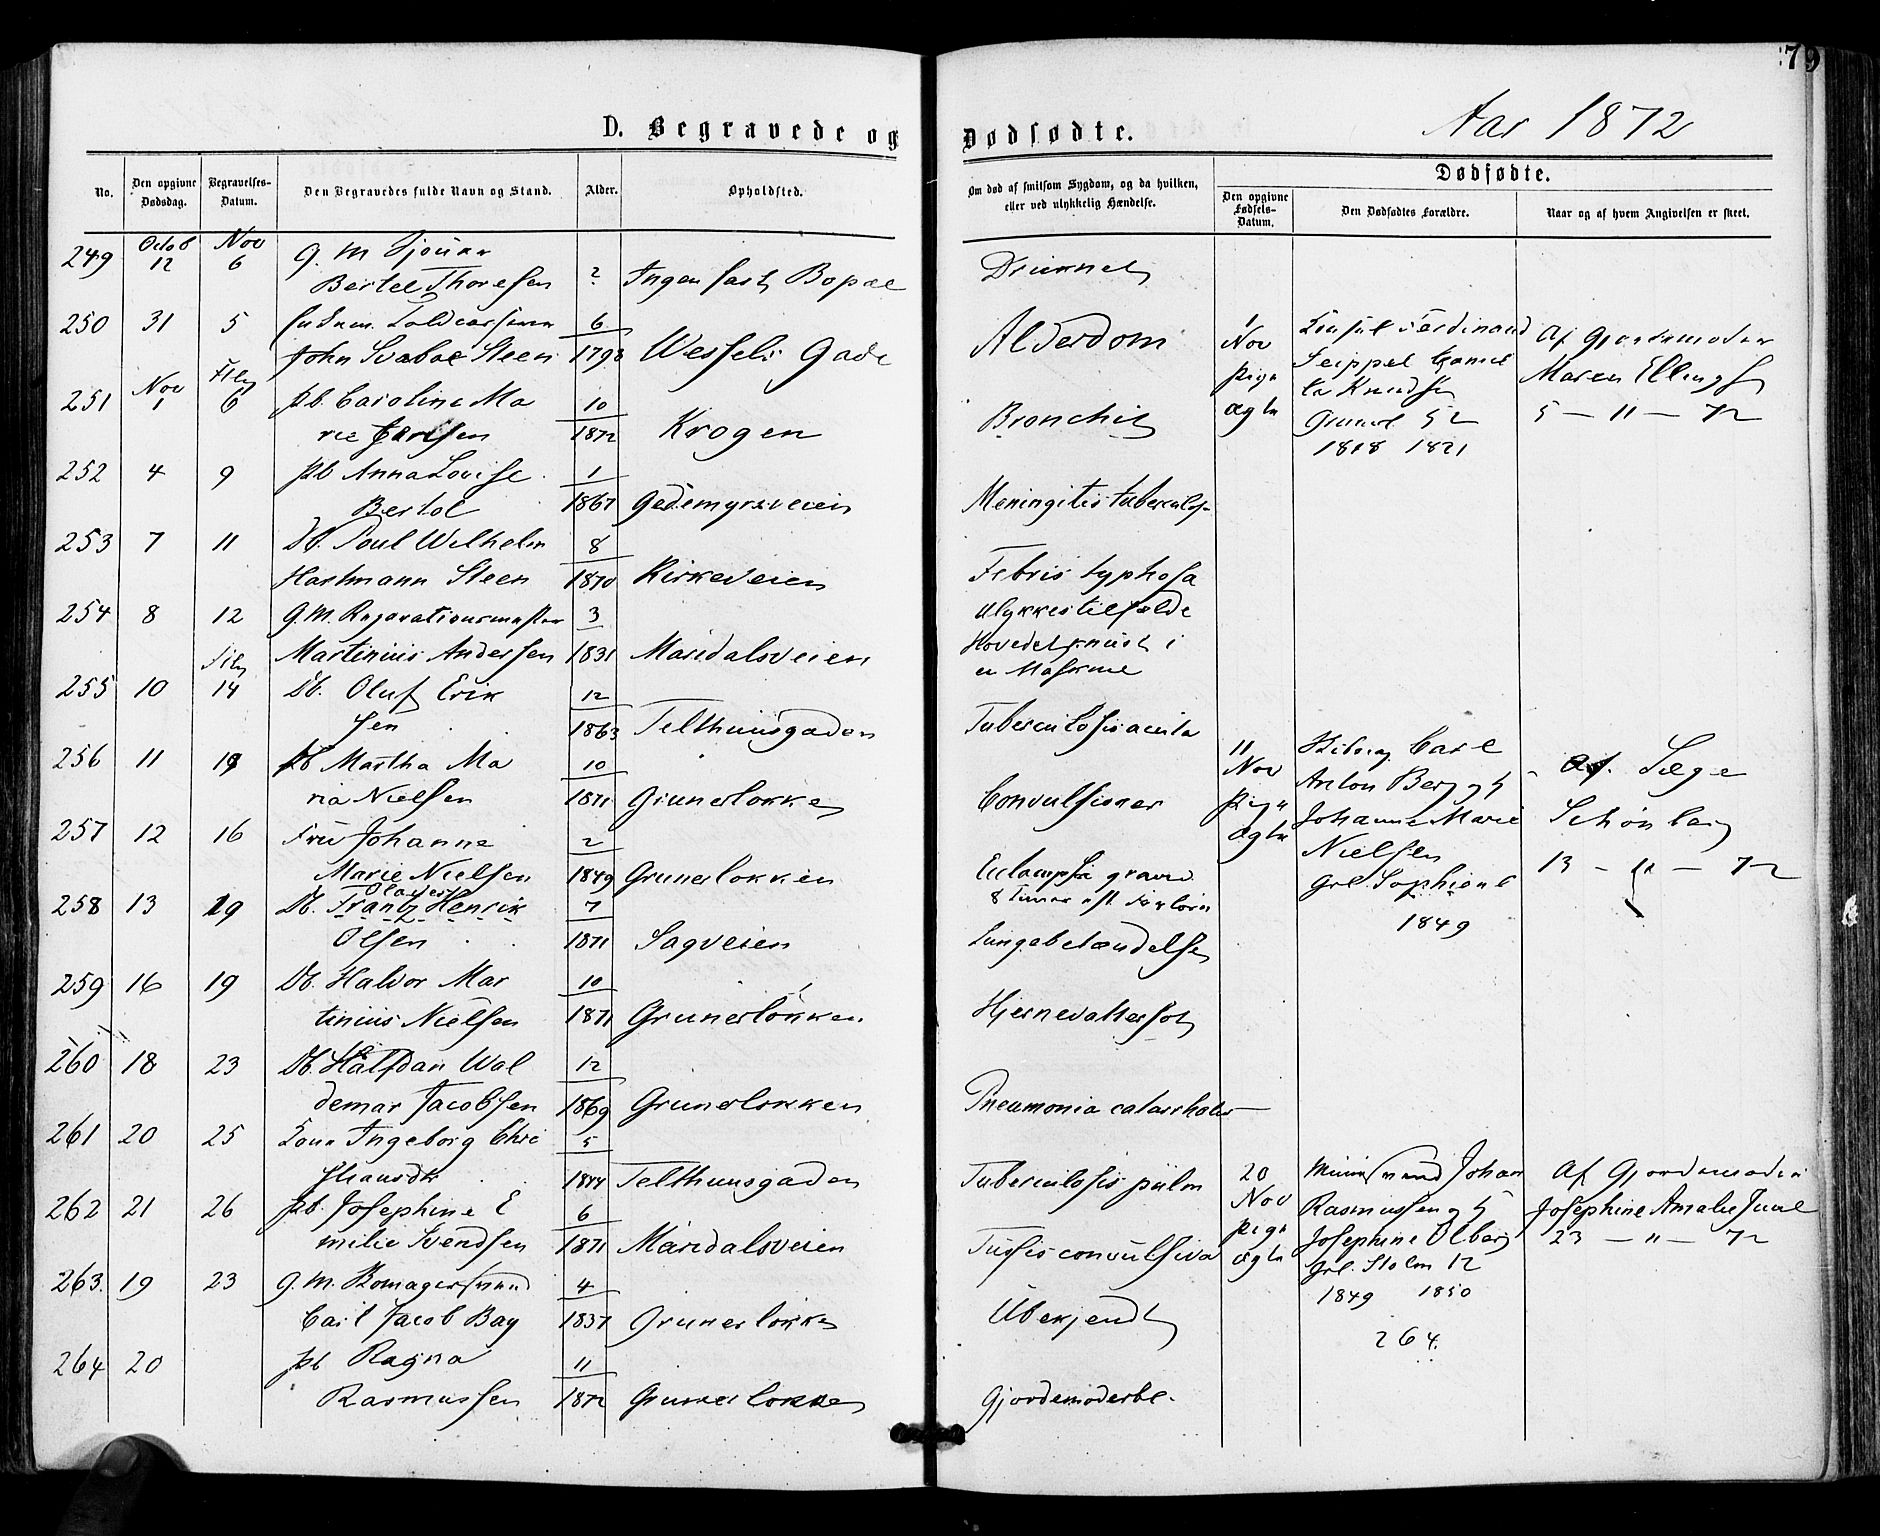 79
D. Begravede og Dødfødte.
Aar 1872
No.
Den opgivne Dødsdag.
Begravelses-Datum.
Den Begravedes fulde Navn og Stand.
Alder.
Opholdsted.
Om død af smitsom Sygdom, og da hvilken, eller ved ulykkelig Hændelse.
Dødfødte.
Den opgivne Fødsels-Datum.
Den Dødfødtes Forældre.
Naar og af hvem Angivelsen er skeet.
249 Octob 12 Nov 6 G. M
Bertel Thoresen ? Ingen fast Bopæl Druknet
250 31 5 6
John Svaboe Steen 1798 Wessels Gade Alderdom
251 Nov 1 6 Pb. Caroline Ma 10
rie 1872 Krogen Bronchit
252 4 9 Pb Anna Lovise 1
Bertol 1867 Gedemyrsveien Meningitis tuberculos-
253 7 11 Db. Poul Wilhelm 8
Hartmann Steen 1870 Kirkeveien Febris typhosa
254 8 12 G. M. Reparationsmester 3 Ulykkestilfælde
Martinius Andersen 1831 Maridalsveien Hovedet knust i
en Maskine
255 10 14 Db. Oluf Erik 12
sen 1863 Telthuusgaden Tuberculosis acuta
256 11 19 Pb Martha Ma 10
ria Nielsen 1871 Grunerløkken Convulsioner
257 12 16 Fru Johanne 2
Marie Nielsen 1849 Grunerløkken Eclampsia gravid
8 Timer eft
258 13 19 Db. Frantz Henrik 7
Olsen 1871 Sagveien Lungebetændelse
259 16 19 Db. Halvor Mar 10
tinius Nielsen 1871 Grunerløkken Hjernevattersot
260 18 23 Db. Halfdan Wal 12
demar Jacobsen 1869 Grunerløkken Pneumonia catarrhalis
261 20 25 Kone Ingeborg Chri 5
stiansdtr 1844 Telthuusgaden Tuberculosis pulm
262 21 26 Pb. Josephine E 6
milie Svendsen 1871 Maridalsveien Tussis convulsiva
263. 19 23 G. M. Bomagersvend 4
Carl Jacob Bay 1837 Grunerløkken Ubekjendt
264 20 Pb Ragna 11
Rasmussen 1872 Grunerløkken Gjordemoderbl.
1 Nov Pige ægte
Ferdinand
Seippel
Knudsen
Grunerl 52
1818 1821
Af Gjordemoder
Maren Ellingsen
5 — 11 — 72
11 Nov Pige ægte
Carl
Anton Berg og H
Johanne Marie
Nielsen
Grl. Sophienl
1849
Af. Læge
Schønberg
13 — " — 72
20 Nov Pige ægte
Johan
Rasmussen og H
Josephine Olberg
Grl. Stolm 12
1849 1850
264.
Af Gjordemoder
Josephine Amalie Juul
23 — " — 72